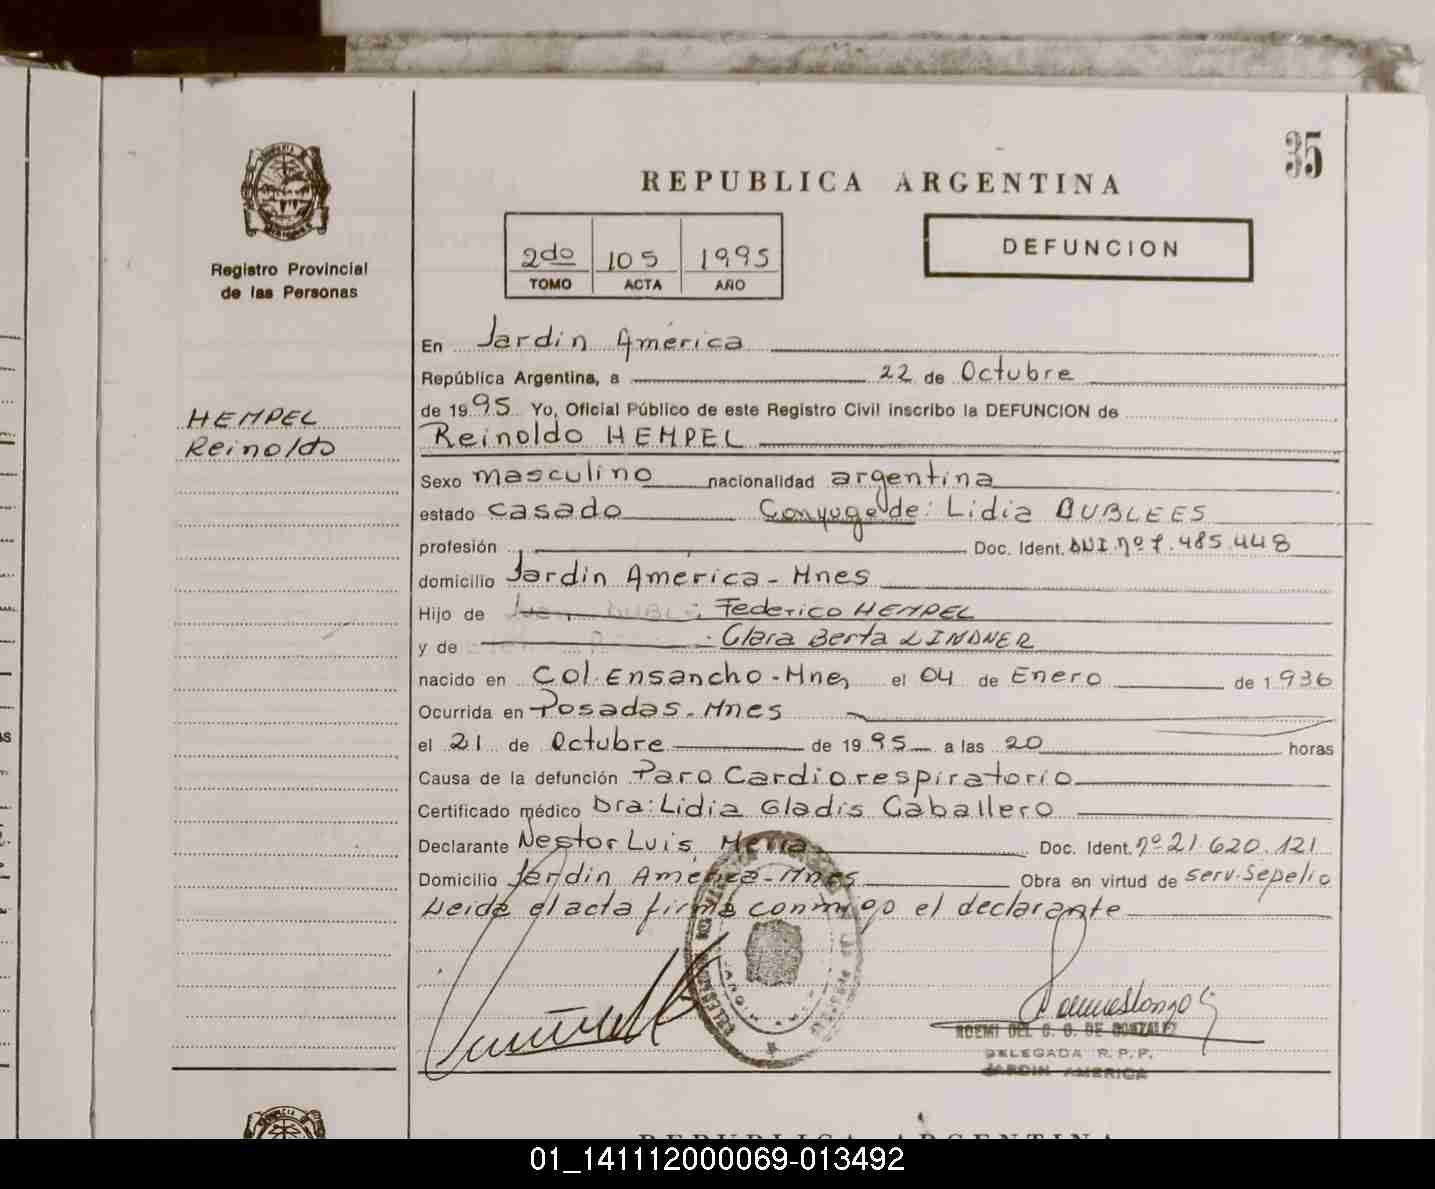 35
REPUBLICA ARGENTINA
Registro Provincial
de las Personas
2do 105 1995
TOMO ACTA AÑO
DEFUNCION
HEMPEL
Reinoldo
En Jardin América
República Argentina, a 22 de Octubre
de 1995 Yo, Oficial Público de este Registro Civil inscribo la DEFUNCION de
Reinoldo HEMPEL
Sexo masculino nacionalidad argentina
estado casado Conyuge de: Lidia BUBLEES
profesión Doc. Ident. DNI. nº 7.485.448
domicilio Jardin America - Mnes
Hijo de : Federico HEMPEL
y de : Clara Berta LINDNER
nacido en Col. Ensancho - Mnes el 04 de Enero de 1.936
Ocurrida en Posadas - Mnes
el 21 de Octubre de 1995 a las 20 horas
Causa de la defunción Paro Cardiorespiratorio
Certificado médico Dra: Lidia Gladis Caballero
Declarante Nestor Luis Doc. Ident. nº 21.620.121
Domicilio Jardin America - Mnes Obra en virtud de serv. Sepelio
Leida el acta firma conmigo el declarante
NOEMI DEL C. O. DE GONZALEZ
DELEGADA R.P.P.
JARDIN AMERICA
REPUBLICA ARGENTINA
01_141112000069-013492